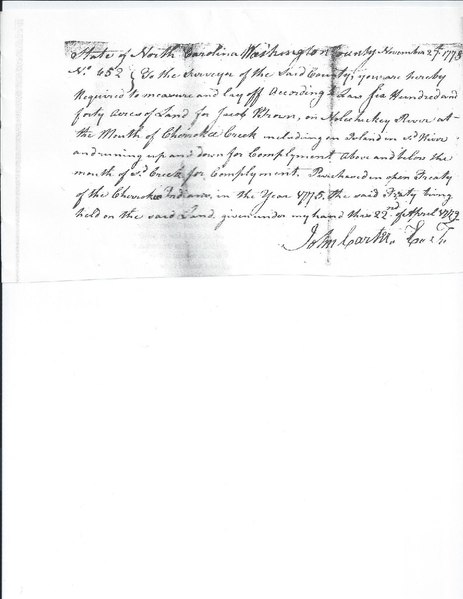 State of North Carolina Washington County November 2th 1778
No 652 } To the Surveyor of the Said County, you are hereby
Required to measure and lay off According to Law Six Hundred and
forty Acres of Land for Jacob Brown, on Nolochuckey River at
the Mouth of Cherokee Creek including an Island in sd River
and runing up and down for Complyment Above and below the
mouth of sd Creek for Complyment. Purchased in open Treaty
of the Cherokee Indians, in the Year 1775, the said Treaty being
held on the said Land, given under my hand this 22nd of April 1779
John Carter E. T.